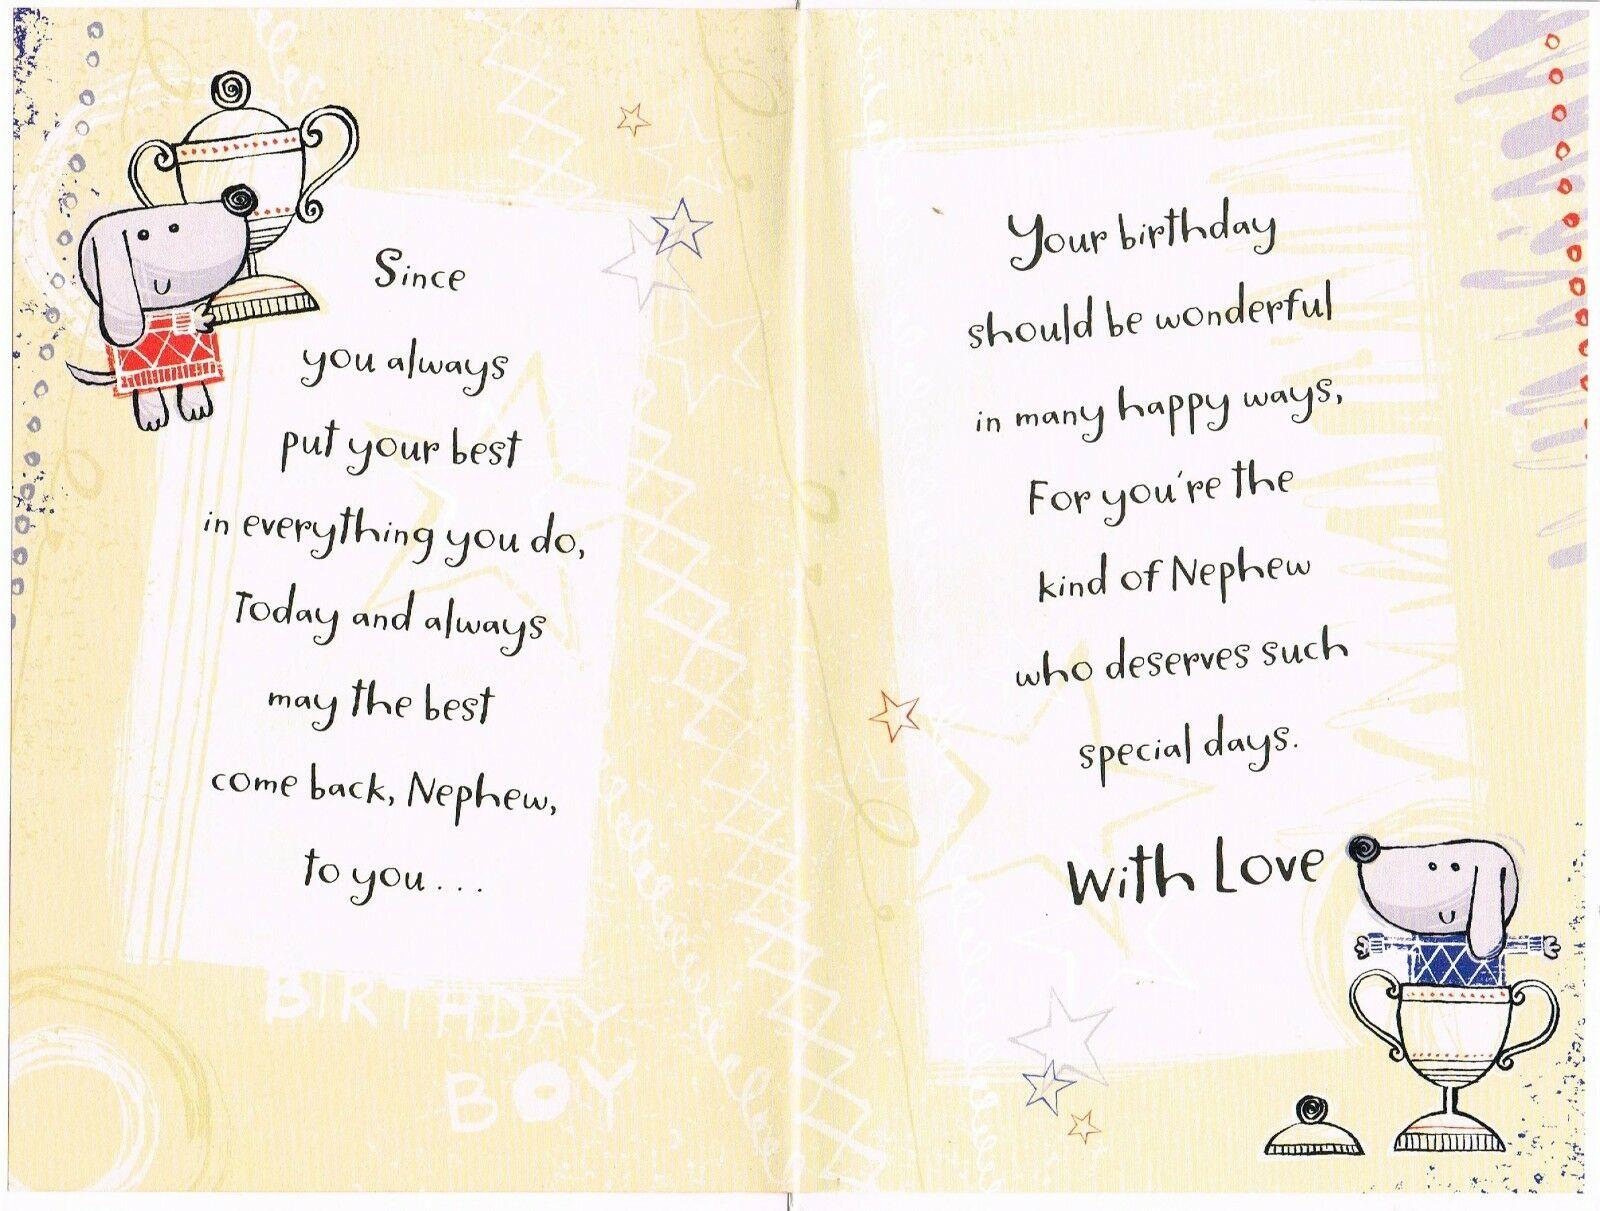 Since
you always
put your best
in everything you do,
Today and always
may the best
come back, Nephew,
to you...
BIRTHDAY
BOY
Your birthday
should be wonderful
in many happy ways,
For you're the
kind of Nephew
who deserves such
special days.
With Love